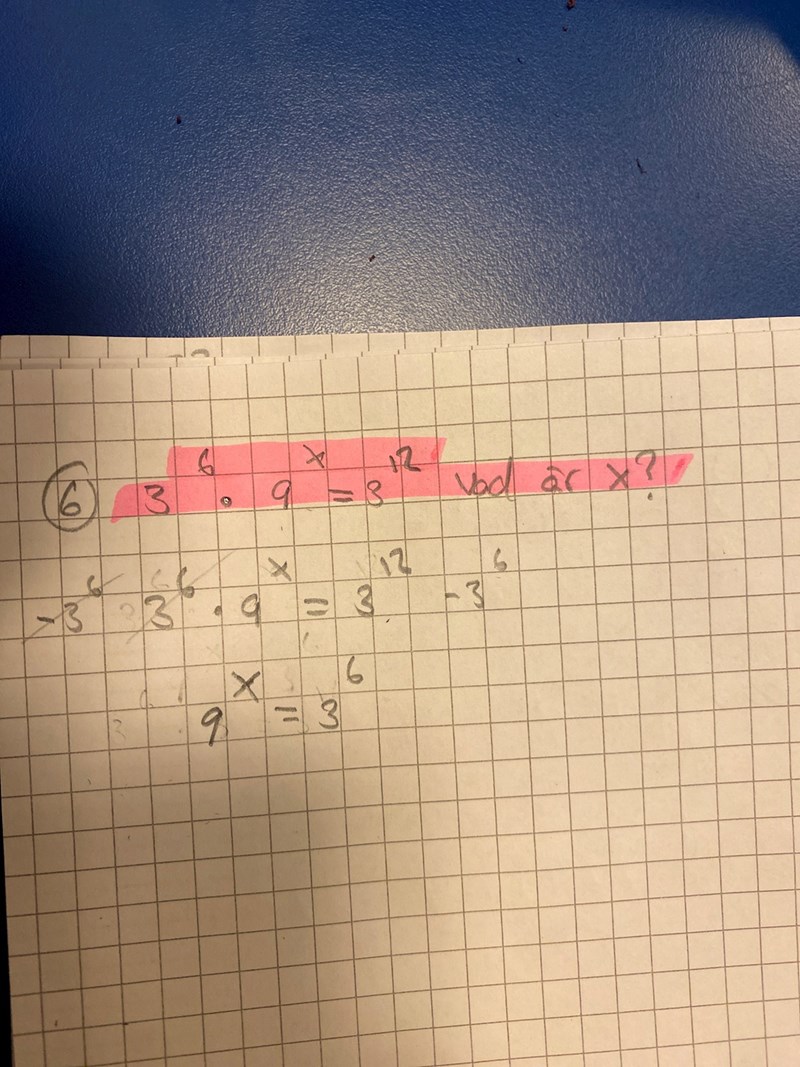 6 3⁶ · 9ˣ = 3¹² vad är x?
-3⁶ 3⁶ · 9ˣ = 3¹² -3⁶
9ˣ = 3⁶